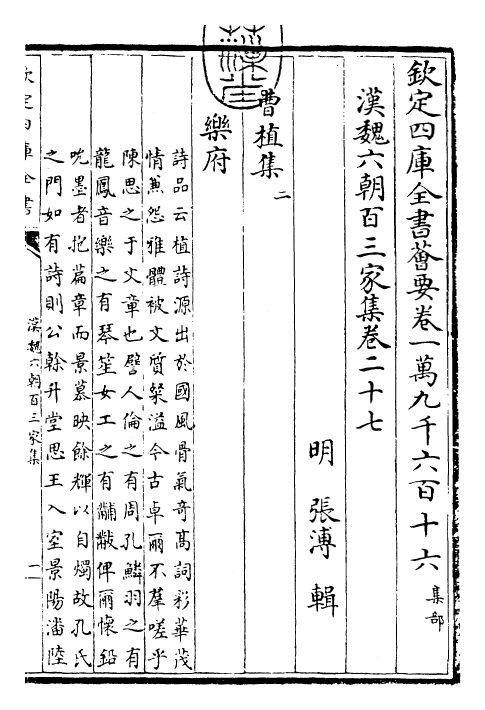 欽定四庫全書薈要卷一萬九千六百十六 集部
漢魏六朝百三家集卷二十七
明 張溥 輯
曹植集二
樂府
詩品云植詩源出於國風骨氣奇高詞彩華茂
情兼怨雅體被文質粲溢今古卓爾不羣嗟乎
陳思之于文章也譬人倫之有周孔鱗羽之有
龍鳳音樂之有琴笙女工之有黼黻俾爾懷鉛
吮墨者抱篇章而景慕映餘輝以自燭故孔氏
之門如有詩則公幹升堂思王入室景陽潘陸
欽定四庫全書
漢魏六朝百三家集
一